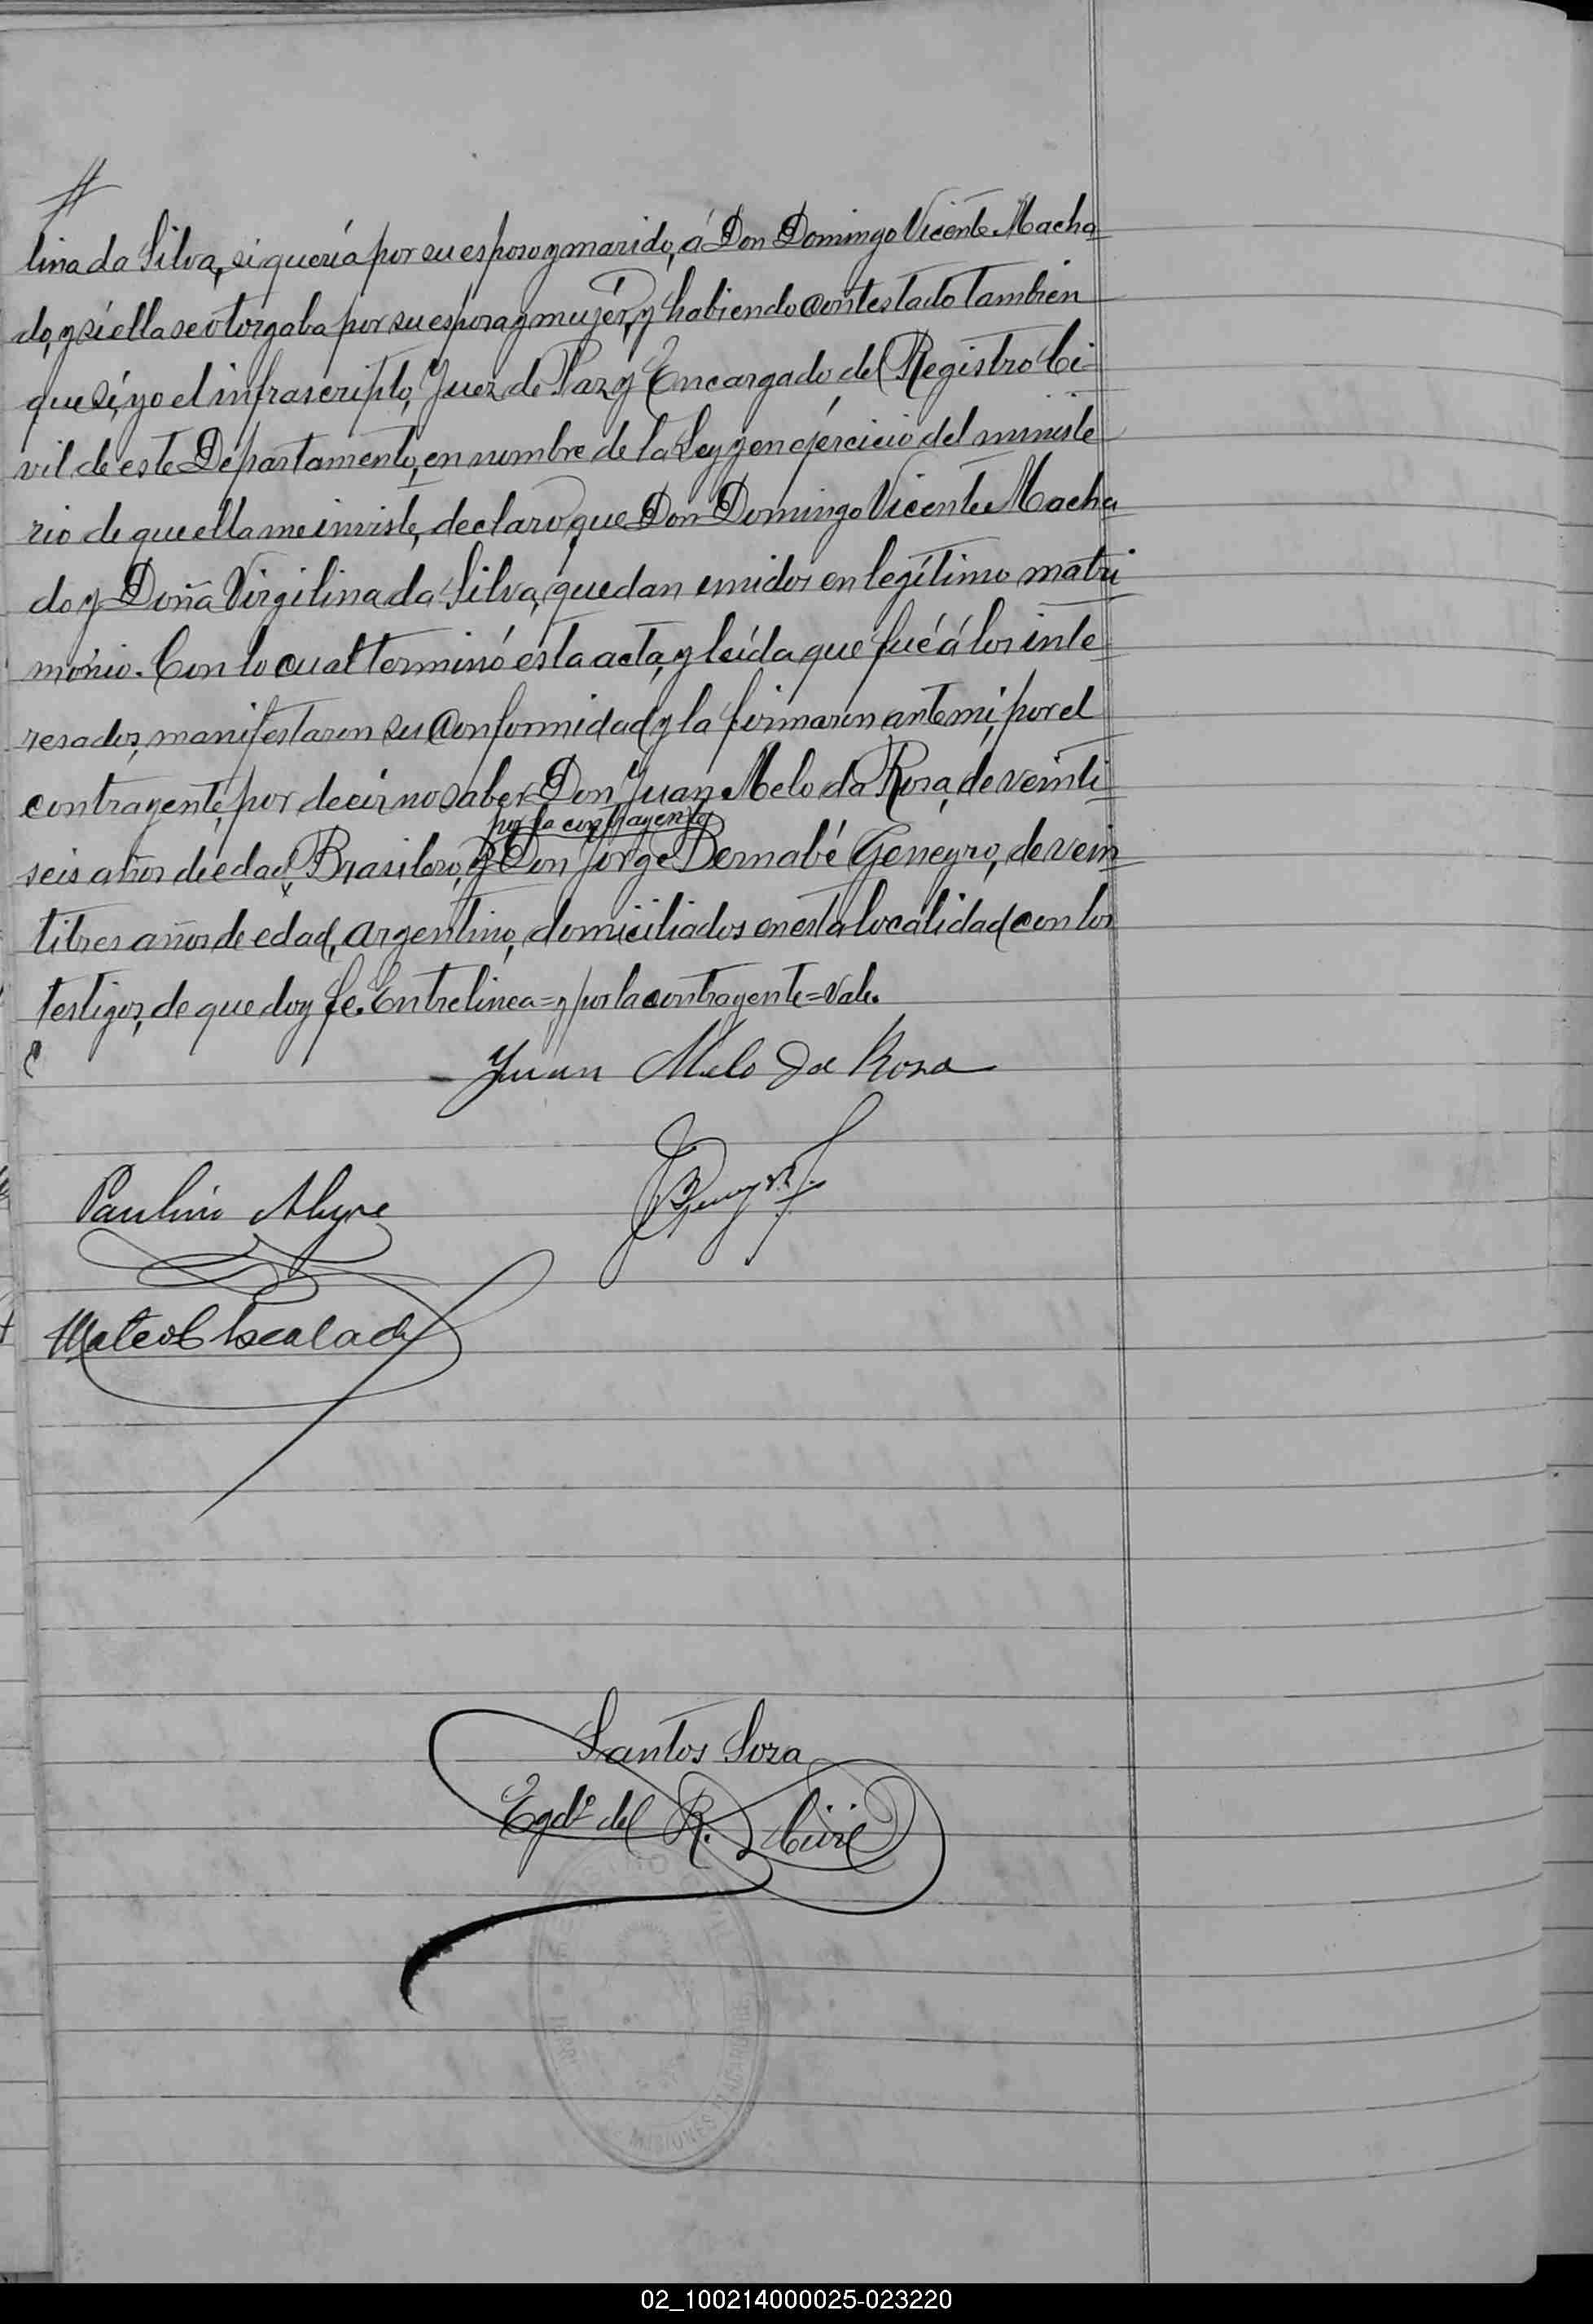 lina da Silva, si quería por su esposo y marido, á Don Domingo Vicente Macha
do, y si ella se otorgaba por su esposa y mujér, y habiendo contestado tambien
que sí, yo el infrascripto, Juez de Paz y Encargado del Registro Ci-
vil de este Departamento, en nombre de la Ley y en ejércicio del ministe
rio de que ella me inviste, declaro que Don Domingo Vicente Macha
do y Doña Virgilina da Silva, quedan unidos en legítimo matri
monio. Con lo cual terminó esta acta, y leída que fué á los inte
resados, manifestaron su conformidad y la firmaron ante mi, por el
contrayente, por decir no saber Don Juan Melo da Rosa, de veinti
por la contrayente
seis años de edad, Brasilero, y Don Jorge Bernabé Géneyro, de vein
titres años de edad, argentino, domiciliados en esta localidad con los
testigos, de que doy fe. Entrelinea = y por la contrayente = Vale.
Juan Melo da Rosa
Paulino Alegre
Mateo Escalada
Santos Soza
Egdo del R. Civil
MISIONES
02_100214000025-023220